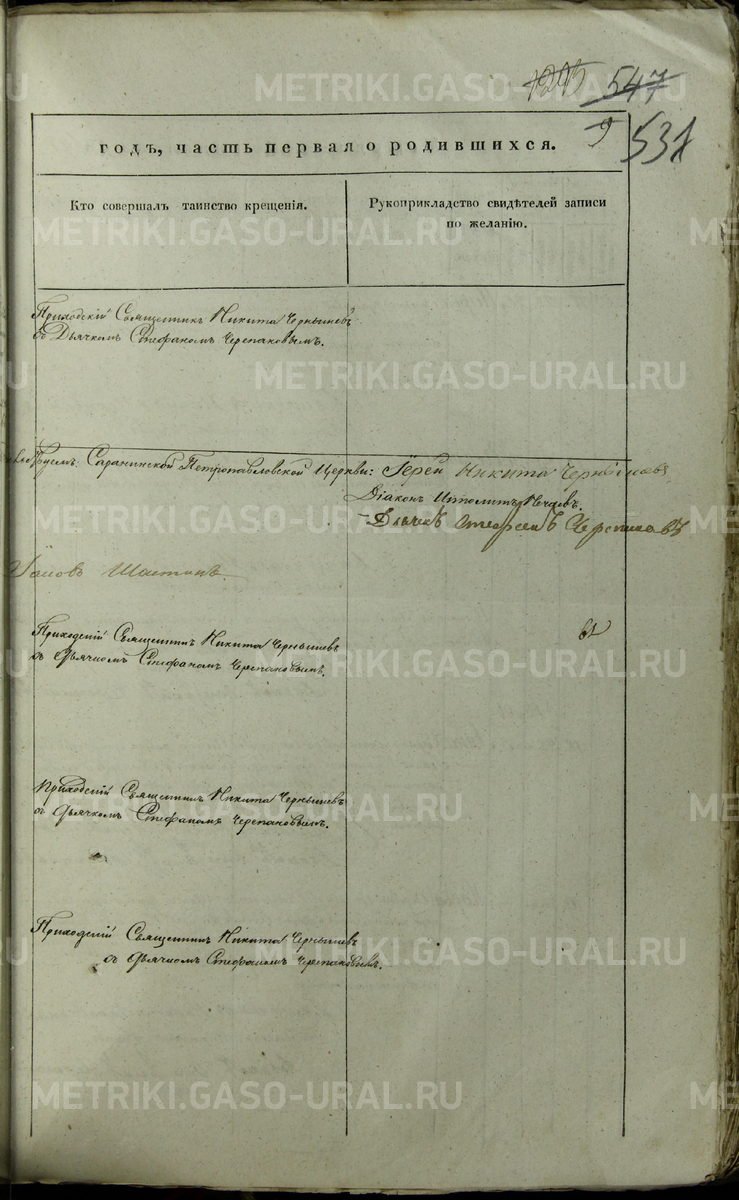 1295 547
9 531
годъ, часть первая о родившихся.
Кто совершалъ таинство крещенія.
Рукоприкладство свидѣтелей записи
по желанію.
Приходскій Священникъ Никита Чернышевъ
съ Дьячкомъ Стефаномъ Черепановымъ.
Саранинской Петропавловской Церкви: Іерей Никита Чернышевъ
Діаконъ Ипполитъ
Дьячекъ Стефанъ Черепановъ
Приходскій Священникъ Никита Чернышевъ
съ Дьячкомъ Стефаномъ Черепановымъ.
Приходскій Священникъ Никита Чернышевъ
съ Дьячкомъ Стефаномъ Черепановымъ.
Приходскій Священникъ Никита Чернышевъ
съ Дьячкомъ Стефаномъ Черепановымъ.
METRIKI.GASO-URAL.RU